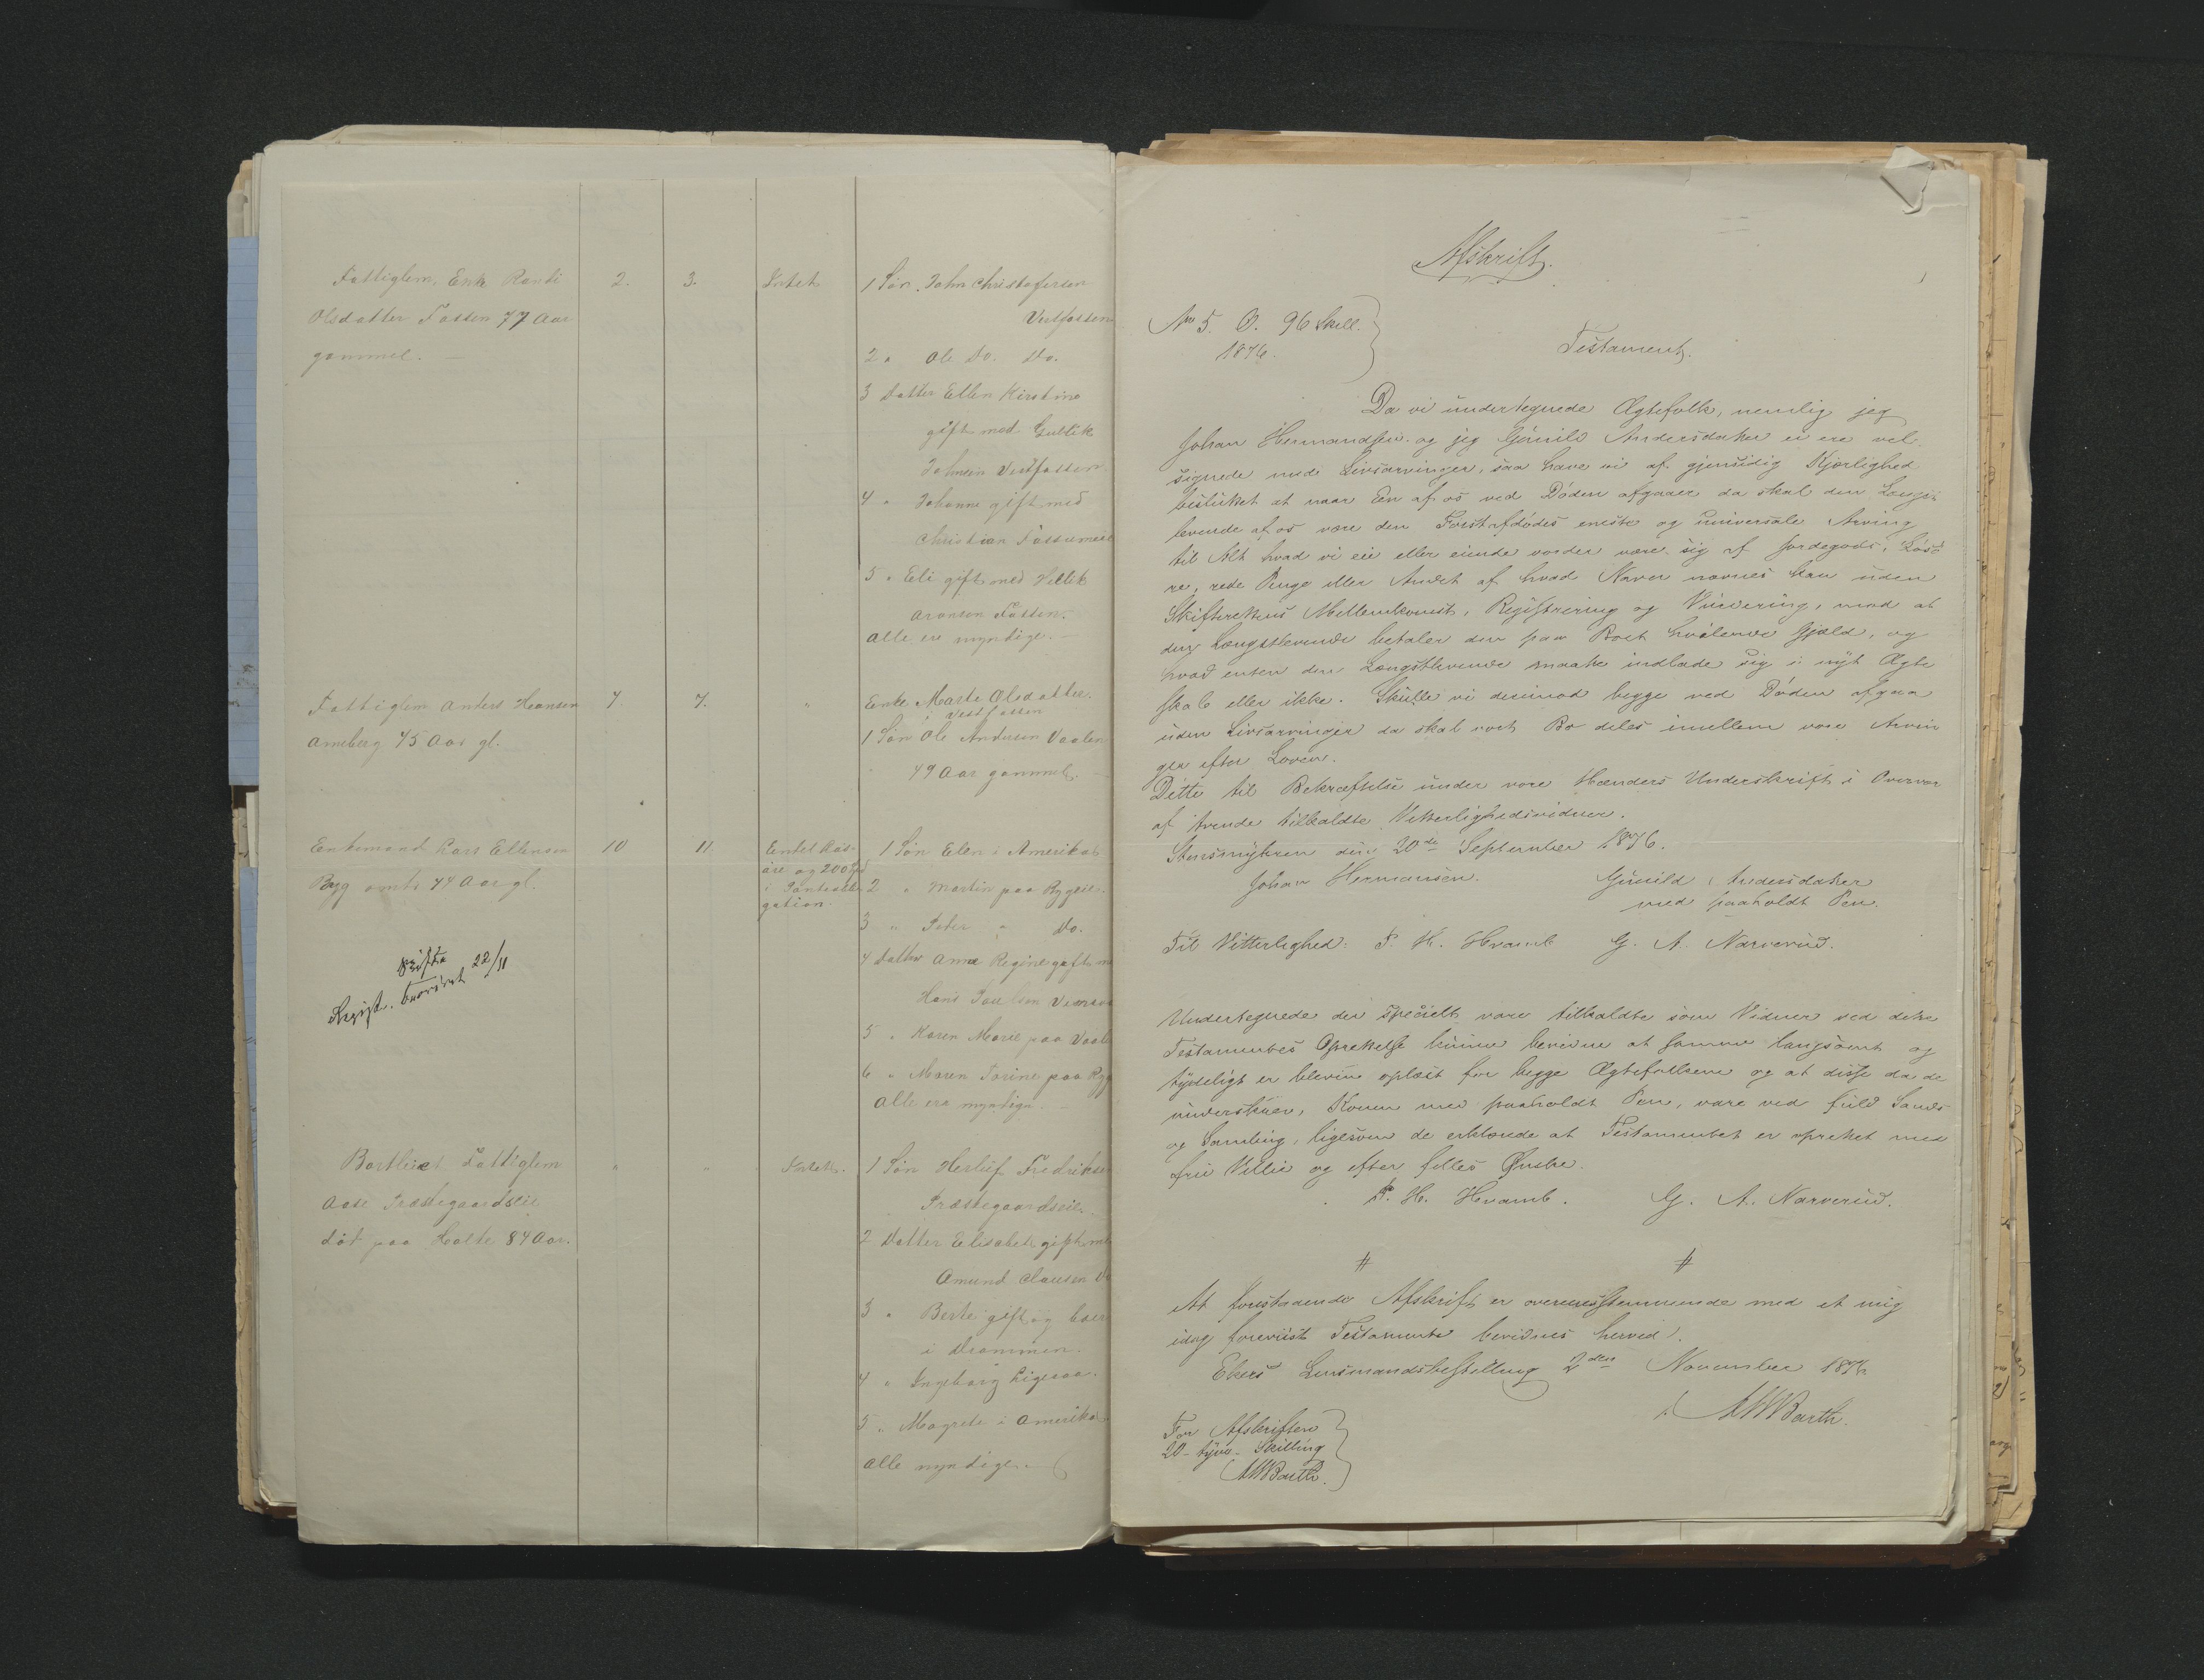 Fattiglem, Enke Randi
Olsdatter Fossen 77 Aar
gammel. —
2.
3.
Intet
1 Søn. John Christofersen
Vestfossen
2 " Ole Do. Do.
3 Datter Ellen Kirstine
gift med Gullik
Johnsen Vestfossen.
4 " Johanne gift med
Christian Fossumeie
5 " Eli gift med Hellik
Aronsen Fossen.
Alle ere myndige. —
Fattiglem Anders Hansen
Arneberg 75 Aar gl.
7.
7.
"
Enke Marte Olsdatter.
i Vestfossen
1 Søn Ole Andersen Vaalen
49 Aar gammel. —
Enkemand Lars Ellensen
Ryg omtr 74 Aar gl.
10
11
Enkel Løs-
øre og 200 Spd
i Pantobli-
gation
1 Søn Elen i Amerika
2 " Martin paa Rygeie.
3 " Peter " Do.
4 Datter Anne Regine gift m
Hans Poulsen
5 " Karen Marie paa Vaale
6 " Maren Torine paa Ryg
Alle ere myndige. —
Skifte
Regist. beordret 22/11
Bortleiet Fattiglem
Aase Præstegaardseie
død paa Holte 84 Aar.
"
"
Intet.
1 Søn Herluf Fredrikse
Præstegaardseie.
2 Datter Elisabeth gift me
Amund Clausen Do
3 " Berte gift og boer
i Drammen.
4 " Ingeborg Ligesaa.
5 " Magrete i Amerika
Alle myndige. —
Afskrift.
No 5. C. 96 Skill.
1876.
Testament.
Da vi undertegnede Ægtefolk, nemlig jeg
Johan Hermandsen og jeg Gunild Andersdatter ei ere vel-
signede med Livsarvinger, saa have vi af gjensidig Kjærlighed
besluttet at naar En af os ved Døden afgaaer da skal den Længst-
levende af os være den Førstafdødes eneste og universale Arving
til Alt hvad vi eie eller eiende vorder være sig af Jordegods, Løsø-
re, rede Penge eller Andet af hvad Navn nævnes kan uden
Skifterettens Mellemkomst, Registrering og Vurdering, mod at
den Længstlevende betaler den paa Boet hvilende Gjæld, og
hvad enten den Længstlevende maatte indlade sig i nyt Ægte
skab eller ikke. Skulle vi derimod begge ved Døden afgaa
uden Livsarvinger da skal vort Bo deles imellem vore Arvin
ger efter Loven.
Dette til Bekræftelse under vore Hænders Underskrift i Overvær
af tvende tilkaldte Vitterlighedsvidner.
Stensmyhren den 20de September 1876.
Johan Hermansen. Gunild Andersdatter
med paaholdt Pen.
Til Vitterlighed: P. H. Hvamb G. A. Narverud.
Undertegnede der specielt vare tilkaldte som Vidner ved dette
Testamentes Oprettelse kunne bevidne at samme langsomt og
tydeligt er bleven oplæst for begge Ægtefolkene og at disse da de
underskrev, Konen med paaholdt Pen, vare ved fuld Sands
og Samling, ligesom de erklærede at Testamentet er oprettet med
frie Villie og efter fælles Ønske.
P. H. Hvamb. G. A. Narverud.
# #
At forestaaende Afskrift er overensstemmende med et mig
idag foreviist Testamente bevidnes herved.
Ekers Lensmandsbestilling 2den November 1876
A W Barth.
For Afskriften
20 – tyve – Skilling
A W Barth.